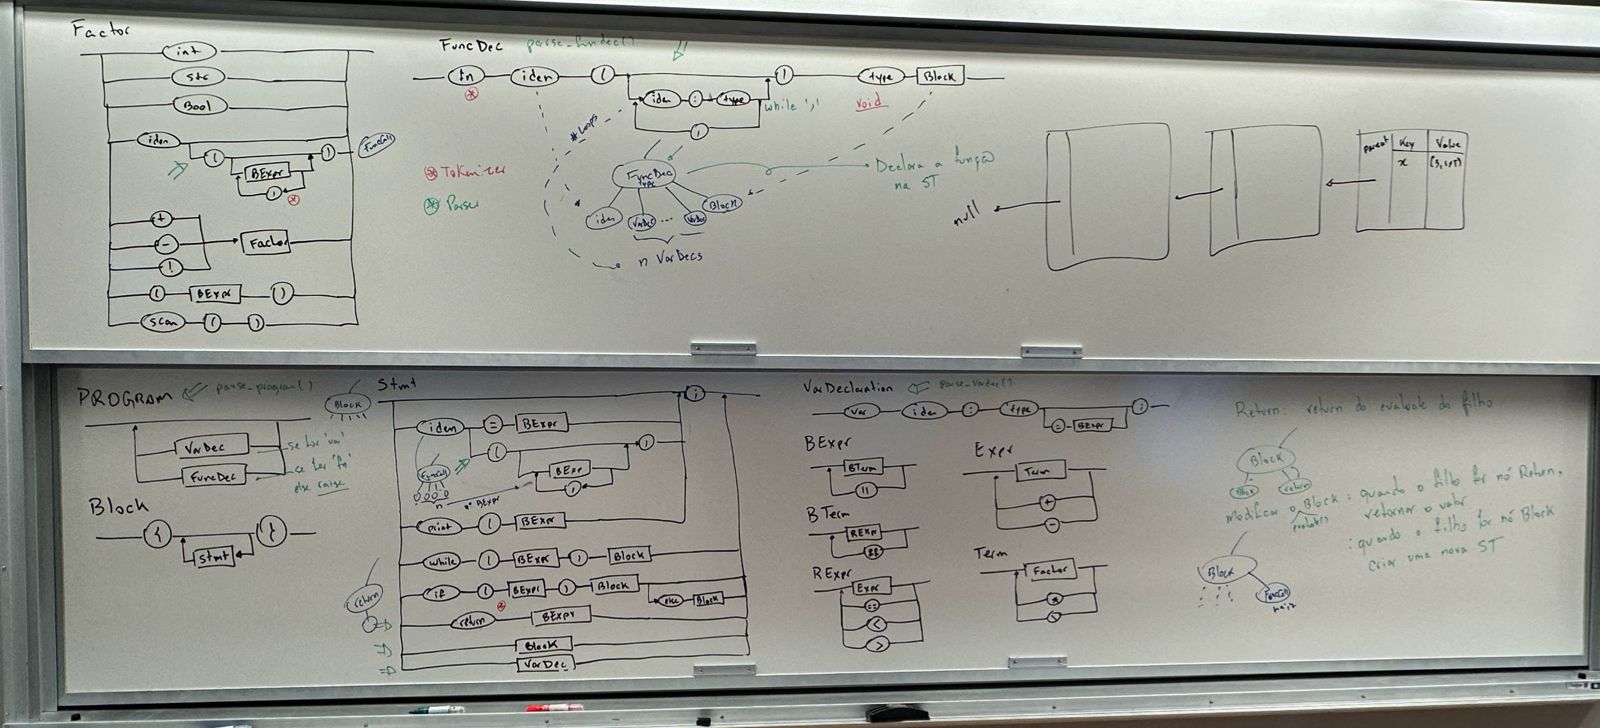 Factor
int
str
Bool
iden
(
BExpr
)
,
FuncCall
+
-
!
Factor
( BExpr )
scan ( )
FuncDec parse_funcdec()
fn iden ( ) type Block
iden : type while ','
,
void
# Loops
Tokenizer
Parser
FuncDec
type
iden VarDec ... VarDec Block
n VarDecs
Declara a função
na ST
null
parent Key Value
x
PROGRAM parse_program()
VarDec se for 'var'
FuncDec se for 'fn'
else raise
Block
{ }
Stmt
Block
Stmt
;
iden = BExpr
( )
BExpr
,
FuncCall
n
print ( BExpr
while ( BExpr ) Block
if ( BExpr ) Block
else Block
return BExpr
return
Block
VarDec
VarDeclaration parse_vardec()
var iden : type = BExpr ;
BExpr
BTerm
||
BTerm
RExpr
&&
RExpr
Expr
==
<
>
Expr
Term
+
-
Term
Factor
*
Return: return do evaluate do filho
Block
return
modificar o Block: quando o filho for nó Return,
retornar o valor
: quando o filho for nó Block
criar uma nova ST
Block
FuncCall
main